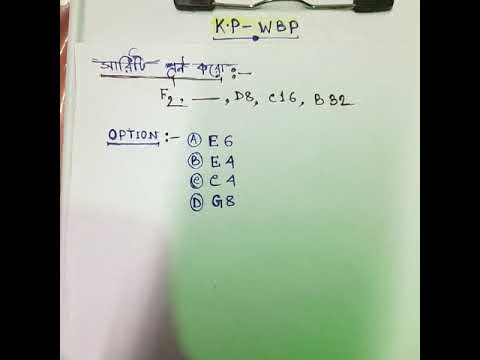 K.P - WBP
সারিটি পূর্ণ করো :-
F2, —, D8, C16, B32
OPTION :-
Ⓐ E6
Ⓑ E4
Ⓒ C4
Ⓓ G8